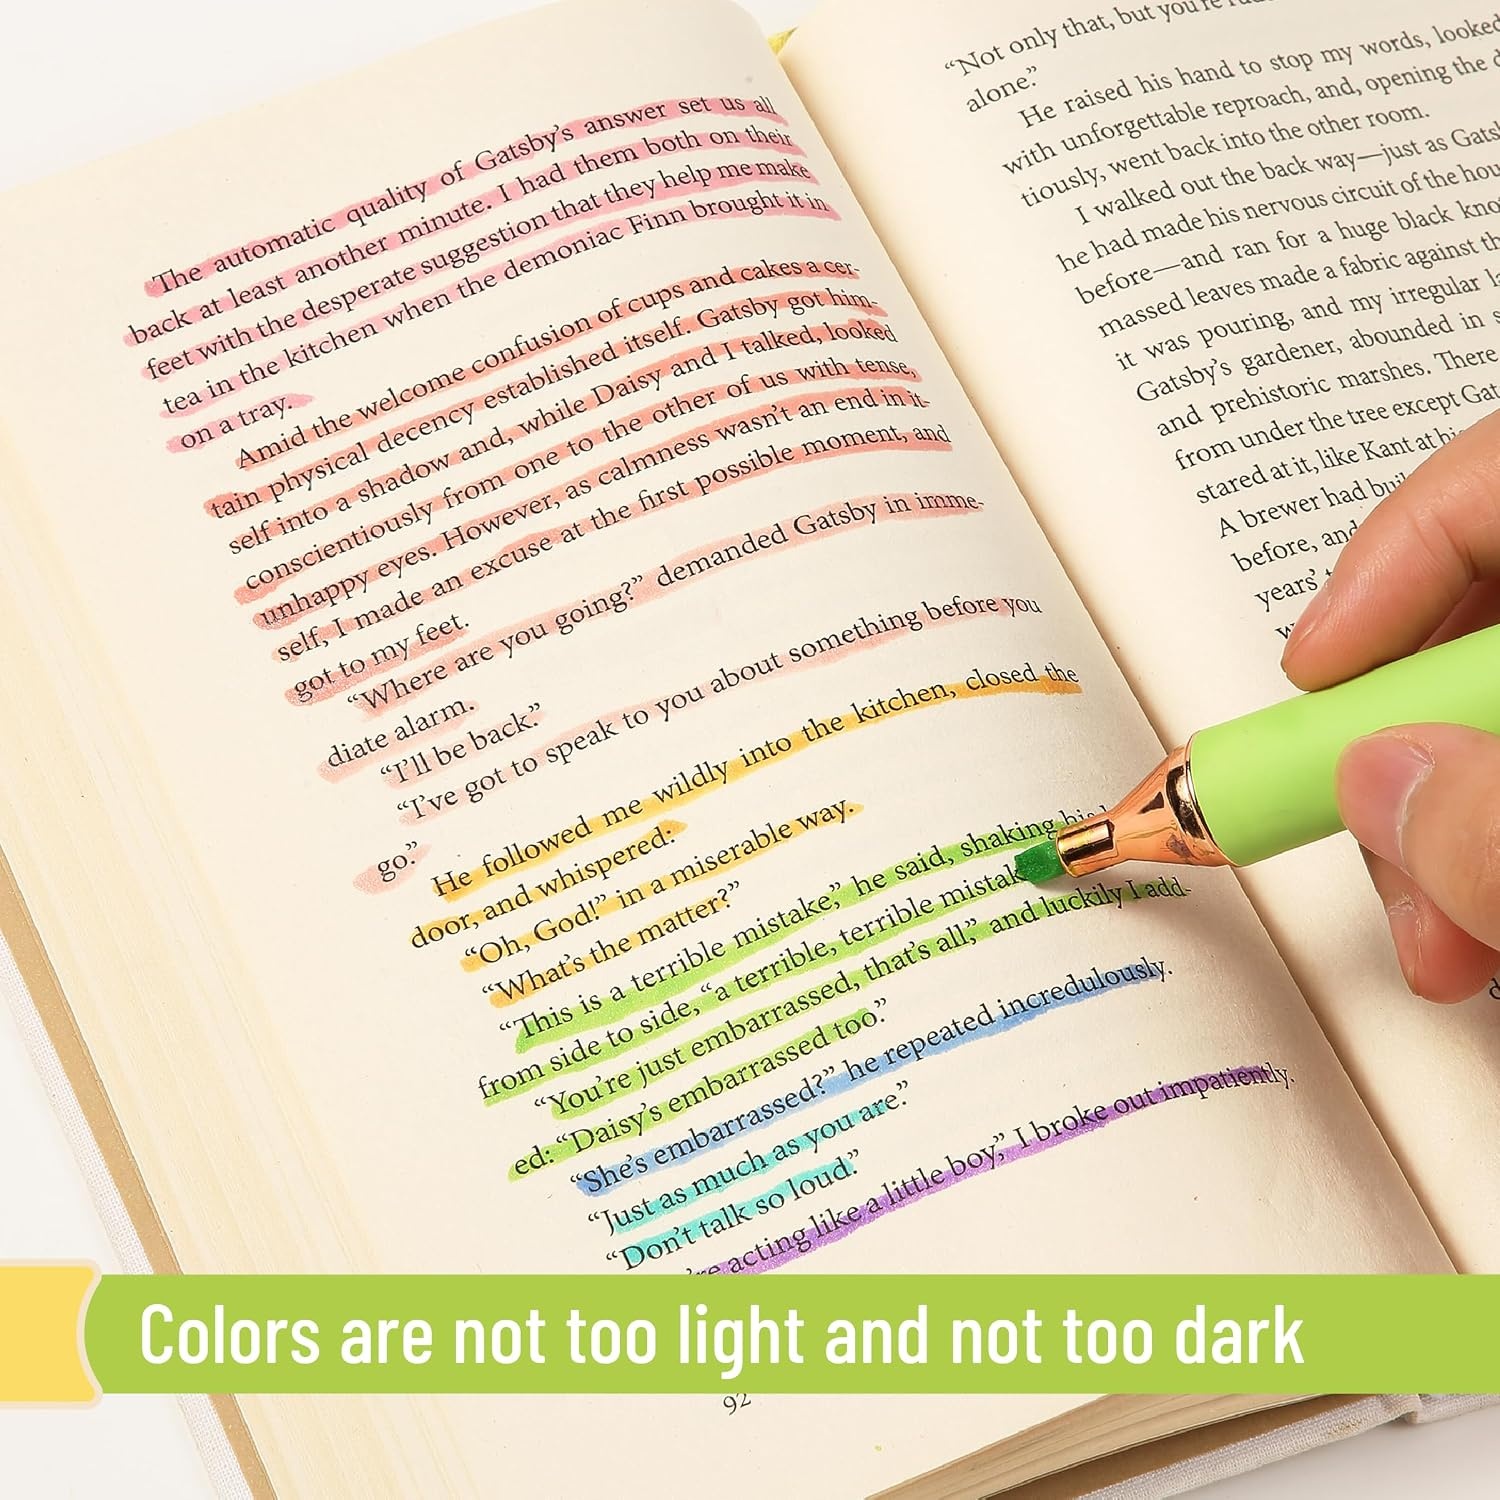 The automatic quality of Gatsby’s answer set us all
back at least another minute. I had them both on their
feet with the desperate suggestion that they help me make
tea in the kitchen when the demoniac Finn brought it in
on a tray.
Amid the welcome confusion of cups and cakes a cer-
tain physical decency established itself. Gatsby got him-
self into a shadow and, while Daisy and I talked, looked
conscientiously from one to the other of us with tense,
unhappy eyes. However, as calmness wasn’t an end in it-
self, I made an excuse at the first possible moment, and
got to my feet.
“Where are you going?” demanded Gatsby in imme-
diate alarm.
“I’ll be back.”
“I’ve got to speak to you about something before you
go.”
He followed me wildly into the kitchen, closed the
door, and whispered:
“Oh, God!” in a miserable way.
“What’s the matter?”
“This is a terrible mistake,” he said, shaking his
from side to side, “a terrible, terrible
“You’re just embarrassed, that’s all,” and luckily I add-
ed: “Daisy’s embarrassed too.”
“She’s embarrassed?” he repeated incredulously.
“Just as much as you are.”
“Don’t talk so loud.”
acting like a little boy,” I broke out impatiently.
92
“Not only that, but you’re
alone.”
He raised his hand to stop my words, looked
with unforgettable reproach, and, opening the
tiously, went back into the other room.
I walked out the back way—just as
he had made his nervous circuit of the
before—and ran for a huge black
massed leaves made a fabric against
it was pouring, and my irregular
Gatsby’s gardener, abounded in
and prehistoric marshes. There
from under the tree except
stared at it, like Kant at
A brewer had
before, and
years’
Colors are not too light and not too dark